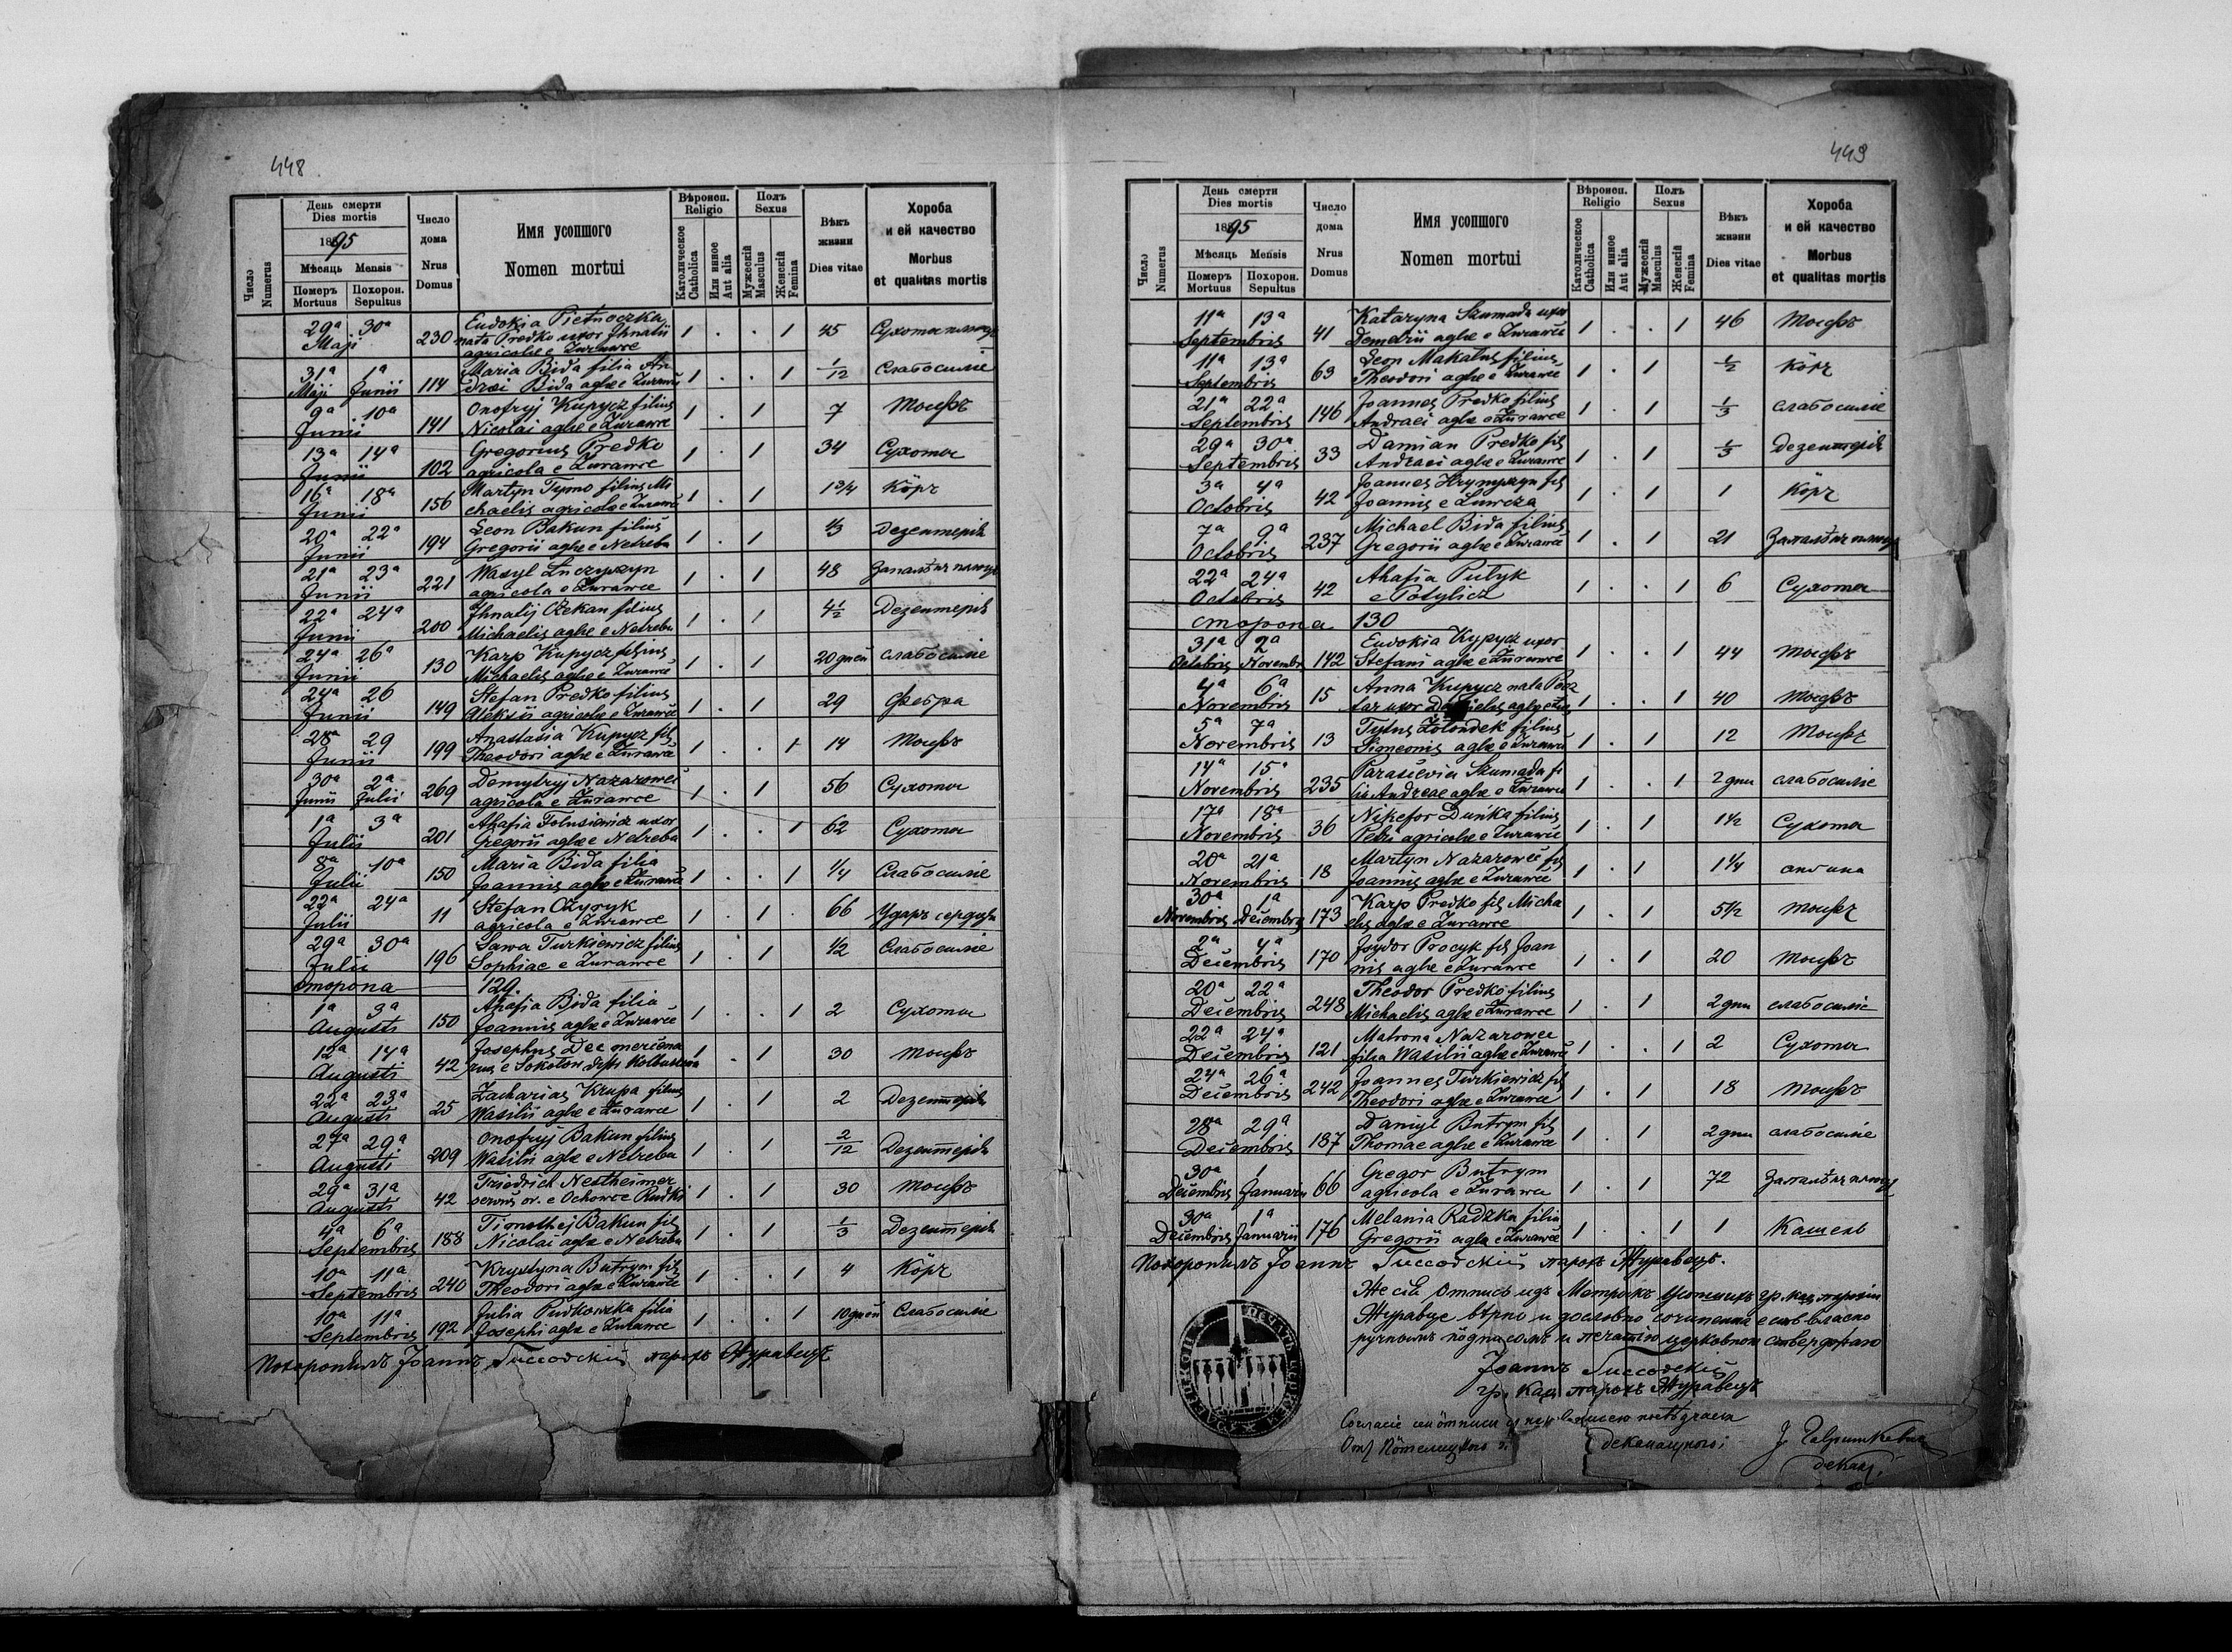 448
Число Numerus
День смерти
Dies mortis
1895
Мѣсяць Mensis
Померъ Mortuus
Похорон. Sepultus
Число дома
Nrus Domus
Имя усопшого
Nomen mortui
Вѣроисп. Religio
Католическое Catholica
Или инное Aut alia
Полъ Sexus
Мужескій Masculus
Женскій Femina
Вѣкъ жизни
Dies vitae
Хороба и ей качество
Morbus et qualitas mortis
29ª 30ª Maji 230 Eudokia Pietnoczka
nata Predko uxor Ihnatii
agricolae e Zurawce 1 . . 1 45 Сухота
31ª Maji 1ª Junii 114 Maria Bida filia An
drei Bida aglae e Zurawce 1 . . 1 1/12 Слабосиліе
9ª 10ª Junii 141 Onofryj Kupycz filius
Nicolai aglae e Zurawce 1 . 1 7 Тифъ
13ª 14ª Junii 102 Gregorius Predko
agricola e Zurawce 1 . 1 34 Сухота
16ª 18ª Junii 156 Martyn Tymo filius Mi
chaelis agricolae e Zurawce 1 . 1 1 3/4 Кôрь
20ª 22ª Junii 194 Leon Bakun filius
Gregorii aglae e Netreba 1 . 1 1/3 Дезентерія
21ª 23ª Junii 221 Wasyl
agricola e Zurawce 1 . 1 48
22ª 24ª Junii 200 Ihnatij filius
Michaelis aglae e Netreba 1 . 1 4 1/2 Дезентерія
24ª 26ª Junii 130 Karp Kupycz filius
Michaelis aglae e Zurawce 1 . 1 20 дней слабосиліе
24ª 26 Junii 149 Stefan Predko filius
Aleksii agricolae e Zurawce 1 . 1 29 Фебра
28ª 29 Junii 199 Anastasia Kupycz fil
Theodori aglae e Zurawce 1 . . 1 14 Тифъ
30ª Junii 2ª Julii 269 Demytryj Nazarowec
agricola e Zurawce 1 . 1 56 Сухота
1ª 3ª Julii 201 Ahafia uxor
Gregorii aglae e Netreba 1 . . 1 62 Сухота
8ª 10ª Julii 150 Maria Bida filia
Joannis aglae e Zurawce 1 . . 1 1/4 Слабосиліе
22ª 24ª Julii 11 Stefan Czyryk
agricola e Zurawce 1 . 1 . 66 Ударъ сердца
29ª 30ª Julii 196 Sawa Turkiewicz filius
Sophiae e Zurawce 1 . 1 1/2 Слабосиліе
сторона 129.
1ª 3ª Augusti 150 Ahafia Bida filia
Joannis aglae e Zurawce 1 . . 1 2 Сухота
12ª 14ª Augusti 42 Josephus Dec mercena
rius e Sokolow 1 . 1 30 Тифъ
22ª 23ª Augusti 25 Zacharias Krupa filius
Wasilii aglae e Zurawce 1 . 1 2 Дезентерія
27ª 29ª Augusti 209 Onofryj Bakun filius
Wasilii aglae e Netreba 1 . 1 2/12 Дезентерія
29ª 31ª Augusti 42 Friedrich Nestheimer
1 . 1 30 Тифъ
4ª 6ª Septembris 188 Timothej Bakun fil
Nicolai aglae e Netreba 1 . 1 1/3 Дезентерія
10ª 11ª Septembris 240 Krystyna Butrym fil
Theodori aglae e Zurawce 1 . . 1 4 Кôрь
10ª 11ª Septembris 192 Julia Pudkowka filia
Josephi aglae e Zurawce 1 . . 1 10 дней Слабосиліе
Похоронилъ Іоаннъ Гиссовскій парохъ Журавець
449
Число Numerus
День смерти
Dies mortis
1895
Мѣсяць Mensis
Померъ Mortuus
Похорон. Sepultus
Число дома
Nrus Domus
Имя усопшого
Nomen mortui
Вѣроисп. Religio
Католическое Catholica
Или инное Aut alia
Полъ Sexus
Мужескій Masculus
Женскій Femina
Вѣкъ жизни
Dies vitae
Хороба и ей качество
Morbus et qualitas mortis
11ª 13ª Septembris 41 Kataryna Szumada uxor
Demetrii aglae e Zurawce 1 . . 1 46 Тифъ
11ª 13ª Septembris 63 Leon Makalus filius
Theodori aglae e Zurawce 1 . 1 1/2 Кôрь
21ª 22ª Septembris 146 Joannes Predko filius
Andraei aglae e Zurawce 1 . 1 1/3 слабосиліе
29ª 30ª Septembris 33 Damian Predko fil
Andraei aglae e Zurawce 1 . 1 1/3 Дезентерія
3ª 4ª Octobris 42 Joannes Hrymszyn fil
Joannis e Luwcza 1 . 1 1 Кôрь
7ª 9ª Octobris 237 Michael Bida filius
Gregorii aglae e Zurawce 1 . 1 21
22ª 24ª Octobris 42 Ahafia Putyk
e Potylicz 1 . . 1 6 Сухота
сторона 130
31ª Octobris 2ª Novembr 142 Eudokia Kypycz uxor
Stefani aglae e Zurawce 1 . . 1 44 Тифъ
4ª 6ª Novembris 15 Anna Kupycz nata
uxor 1 . . 1 40 Тифъ
5ª 7ª Novembris 13 Tytus Zolondek filius
Simeonis aglae e Zurawce 1 . 1 12 Тифъ
14ª 15ª Novembris 235 Parascevia Szumada fi
lia Andreae aglae e Zurawce 1 . . 1 2 дни слабосиліе
17ª 18ª Novembris 36 Nikefor Dunka filius
Petri agricolae e Zurawce 1 . 1 1 1/2 Сухота
20ª 21ª Novembris 18 Martyn Nazarowec fil
Joannis aglae e Zurawce 1 . 1 1 1/4 ангина
30ª Novembris 1ª Decembris 173 Karp Predko fil Micha
elis aglae e Zurawce 1 . 1 5 1/2 Тифъ
2ª 4ª Decembris 170 Izydor Procyk fil Joan
nis aglae e Zurawce 1 . 1 20 Тифъ
20ª 22ª Decembris 248 Theodor Predko filius
Michaelis aglae e Zurawce 1 . 1 2 дни слабосиліе
22ª 24ª Decembris 121 Matrona Nazarowec
filia Wasilii aglae e Zurawce 1 . . 1 2 Сухота
24ª 26ª Decembris 242 Joannes Turkiewicz fil
Theodori aglae e Zurawce 1 . 1 18 Тифъ
28ª 29ª Decembris 187 Danyil Butrym fil
Thomae aglae e Zurawce 1 . 1 2 дни слабосиліе
30ª Decembris 1 Januarii 66 Gregor Butrym
agricola e Zurawce 1 . 1 72
30ª Decembris 1ª Januarii 176 Melania Radzka filia
Gregorii aglae e Zurawce 1 . . 1 1 Кашель
Похоронилъ Іоаннъ Гиссовскій парохъ Журавець.
Же сія отпись изъ Метрикъ Усопшихъ гр. кат. парохіи
Журавце вѣрно и дословно сочинена есть власно
ручнымъ пôдписомъ и печатію церковною стверджаю
Іоаннъ Гиссовскій
гр. кат. парохъ Журавець
деканъ